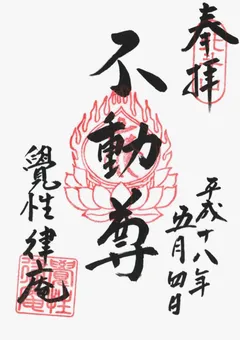 奉拝
平成十八年
五月四日
不動尊
覺性律庵